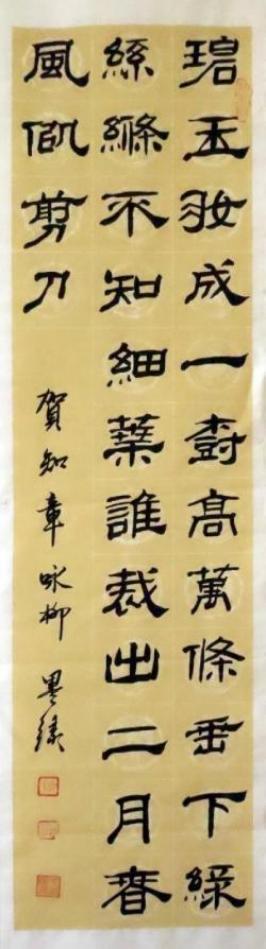 碧玉妝成一樹高萬條垂下綠
絲縧不知細葉誰裁出二月春
風似剪刀
賀知章咏柳 墨